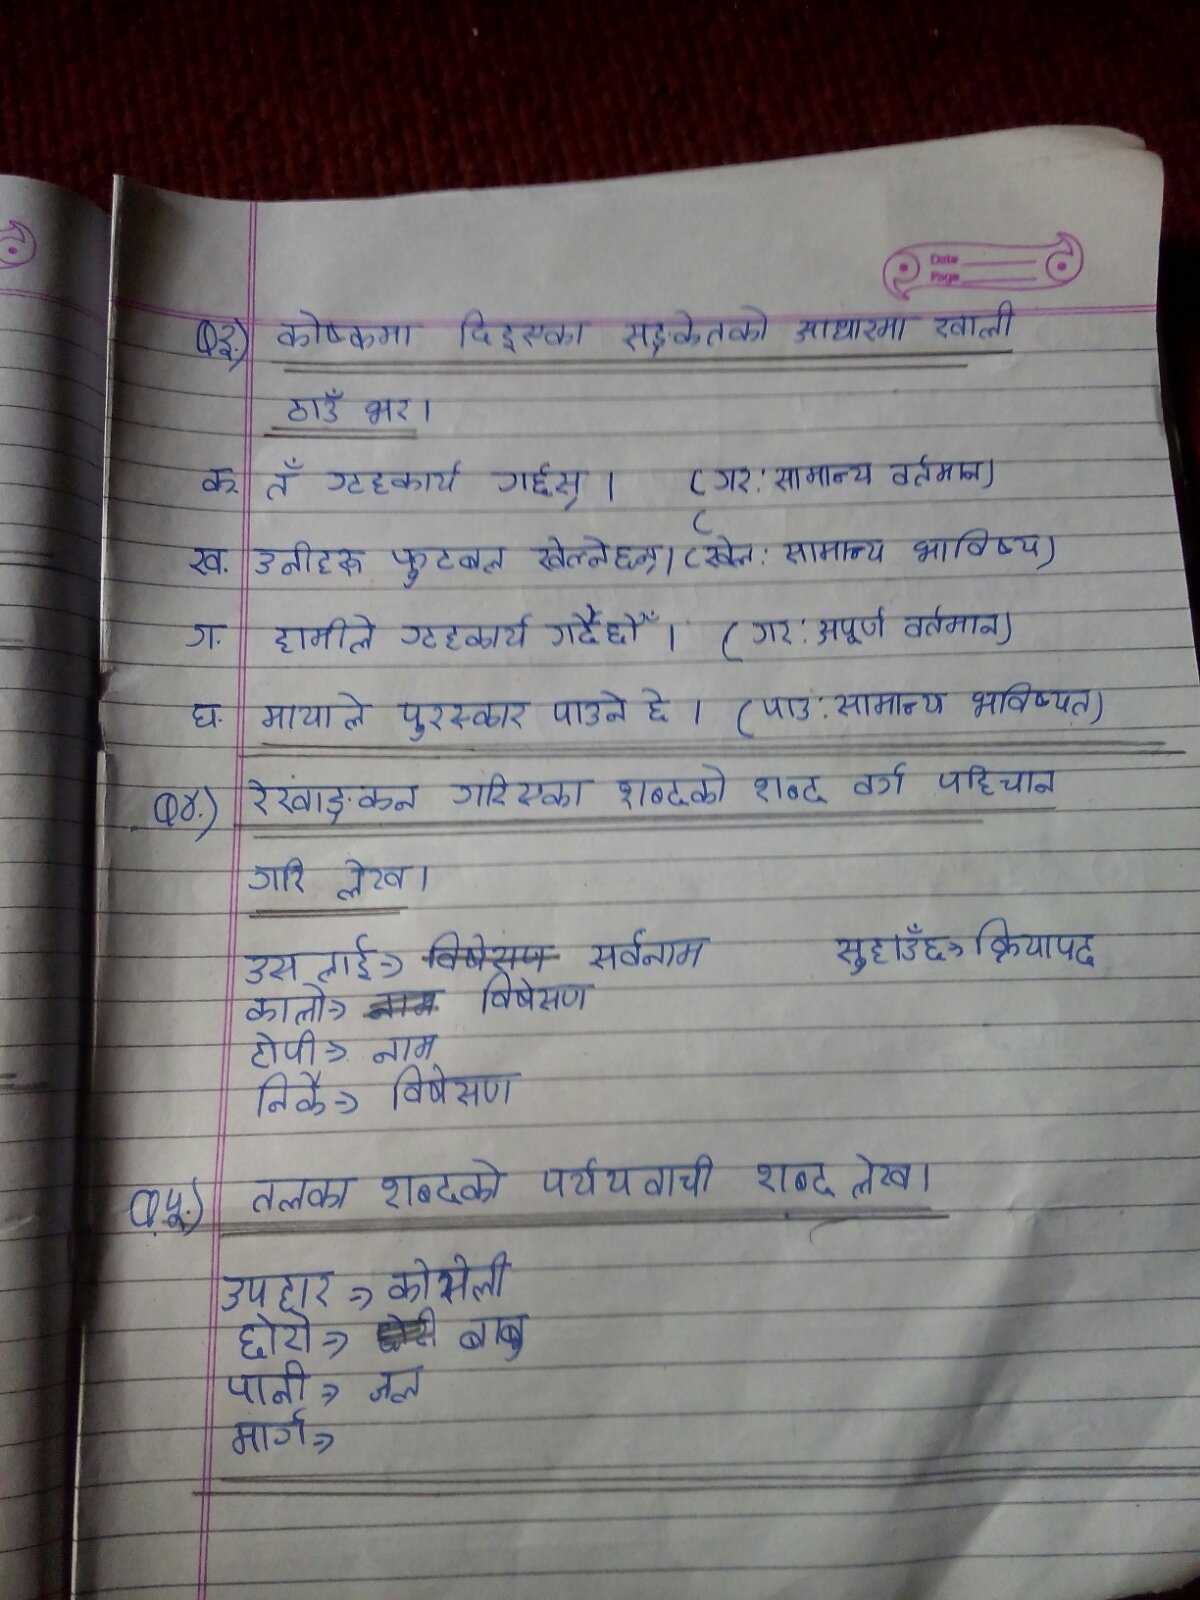 Date
Page
Q३.) कोष्कमा दिइएका सङ्केतको आधारमा खाली
ठाउँ भर।
क. तँ गृहकार्य गर्छस्। (गर: सामान्य वर्तमान)
(
ख. उनीहरू फुटबल खेल्नेछन्। (खेल: सामान्य भाविष्य)
ग. हामीले गृहकार्य गर्दैछौँ। (गर: अपूर्ण वर्तमान)
घ. मायाले पुरस्कार पाउने छे। (पाउ: सामान्य भविष्यत)
Q४.) रेखाङ्कन गरिएका शब्दको शब्द वर्ग पहिचान
गरि लेख।
उस लाई => विषेसण सर्वनाम सुहाउँछ => क्रियापद
कालो => नाम विषेसण
टोपी => नाम
निकै => विषेसण
Q५.) तलका शब्दको पर्ययवाची शब्द लेख।
उपहार => कोसेली
छोरो => छोरी बाबु
पानी => जल
मार्ग =>